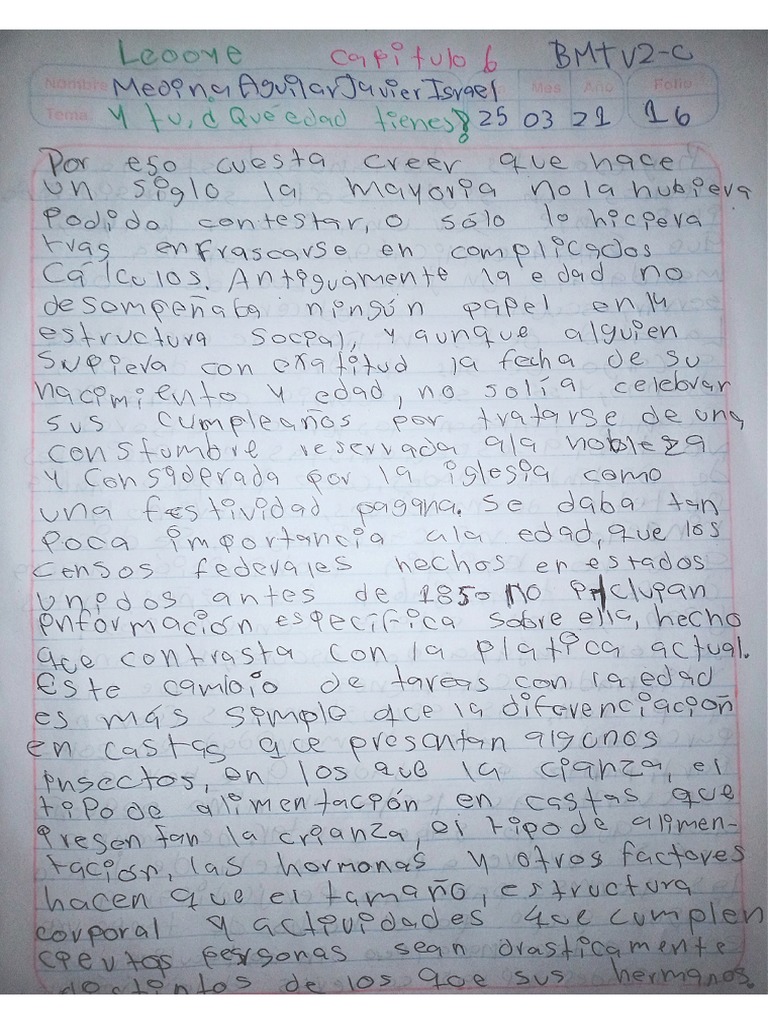 Leoove capitulo 6 BMTV2-C
Nombre Medina Aguilar Javier Israel Mes Año Folio
Tema: Y tu, ¿Qué edad tienes? 25 03 21 16
Por eso cuesta creer que hace
un siglo la mayoria no la hubiera
podido contestar, o sólo lo hiciera
tras enfrascarse en complicados
Cálculos. Antiguamente la edad no
desempeñaba ningún papel en la
estructura social, y aunque alguien
supiera con exatitud la fecha de su
nacimiento y edad, no solía celebrar
sus cumpleaños por tratarse de una
constumbre reservada ala nobleza
y considerada por la iglesia como
una festividad pagana. Se daba tan
poca importancia ala edad, que los
censos federales hechos en estados
unidos antes de 1850 no incluian
información específica sobre ella, hecho
que contrasta con la platica actual.
Este cambio de tareas con la edad
es más simple que la diferenciación
en castas que presentan algunos
insectos, en los que la cianza, el
tipo de alimentación en castas que
presentan la crianza, el tipo de alimen-
tación, las hormonas y otros factores
hacen que el tamaño, estructura
corporal y actividades que cumplen
ciertos personas sean drasticamente
distintos de los que sus hermanos.